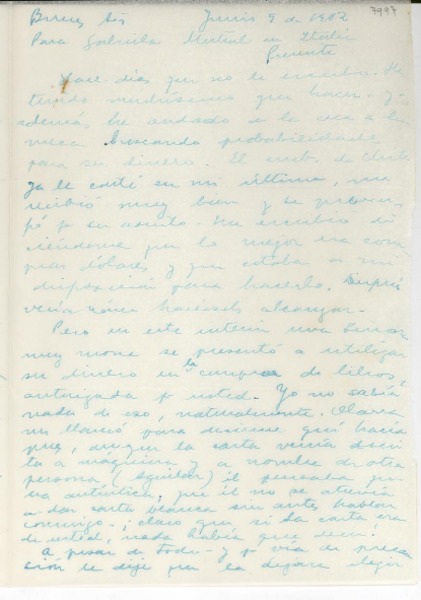 Buenos As Junio 9 de 1952 7997
Para Gabriela Mistral en Italia
Presente
Hace días que no le escribo. He
tenido muchísimo que hacer y
además he andado de la ceca a la
meca buscando probabilidades
para su dinero. El emb. de Chile
ya le conté en mi última, me
recibió muy bien y se preocu
pó p su asunto. Me escribió di
ciéndome que lo mejor era com
prar dólares y que estaba a mi
disposición para hacerlo. Después
vería cómo hacérsela alcanzar.
Pero en este interin una señora
muy mona se presentó a utilizar
su dinero en la compra de libros
autorizada p usted. Yo no sabía
nada de eso, naturalmente.
me llamó para decirme qué hacía
pues, aunque la carta venía escri
ta a máquina y a nombre de otra
persona (Aguilar) él pensaba que
era auténtica, que él no se atrevía
a dar carta blanca sin antes hablar
conmigo. claro que si la carta era
de usted, nada había que decir.
A pesar de todo y p vía de precau
ción le dije que la dejara elegir